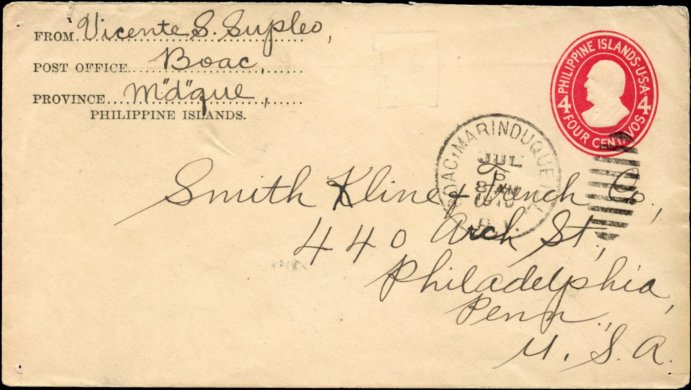 FROM Vicente S. Supleo,
POST OFFICE Boac,
PROVINCE M"d"que,
PHILIPPINE ISLANDS.
PHILIPPINE ISLANDS·U·S·A
4 4
FOUR CENTAVOS
BOAC, MARINDUQUE
JUL
6
8 AM
P.I.
Smith Kline & French Co.,
440 Arch St.,
Philadelphia,
Penn.,
U. S. A.